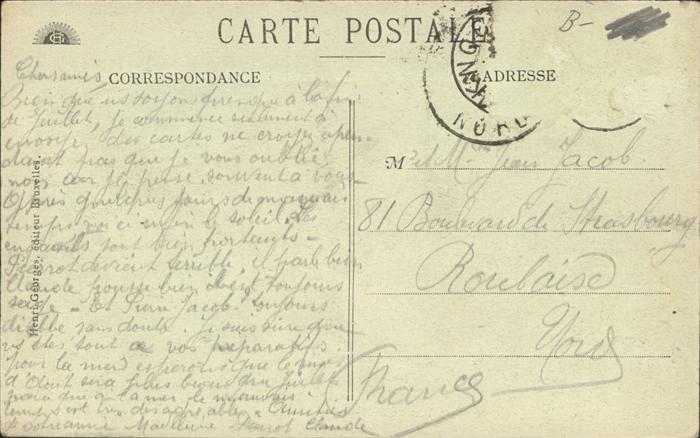 CARTE POSTALE
B-
CORRESPONDANCE
ADRESSE
NORD
Henri Georges, éditeur Bruxelles.
Chers amis
Bien que ns soyons à la fin
de Juillet, je commence seulement à
envoyer des cartes ne croyez
pas que je vous oublie
non car je pense souvent à vous
Après quelques jours de mauvais
temps voici enfin le soleil. Les
enfants sont bien portants -
Pierrot devient terrible, il parle bien
Claude pousse bien toujours
sage - Et Pierre Jacob toujours
diable sans doute. Je suis sûre que
vs êtes tout à vos préparatifs
pour la mer espérons que le mois
d'Août sera plus beau que juillet
parce que à la mer le mauvais
temps est très désagréable - Amitiés
Madeleine Pierrot Claude
Mr et Me Jean Jacob
81 Boulevard de Strasbourg
Roubaise
Nord
France